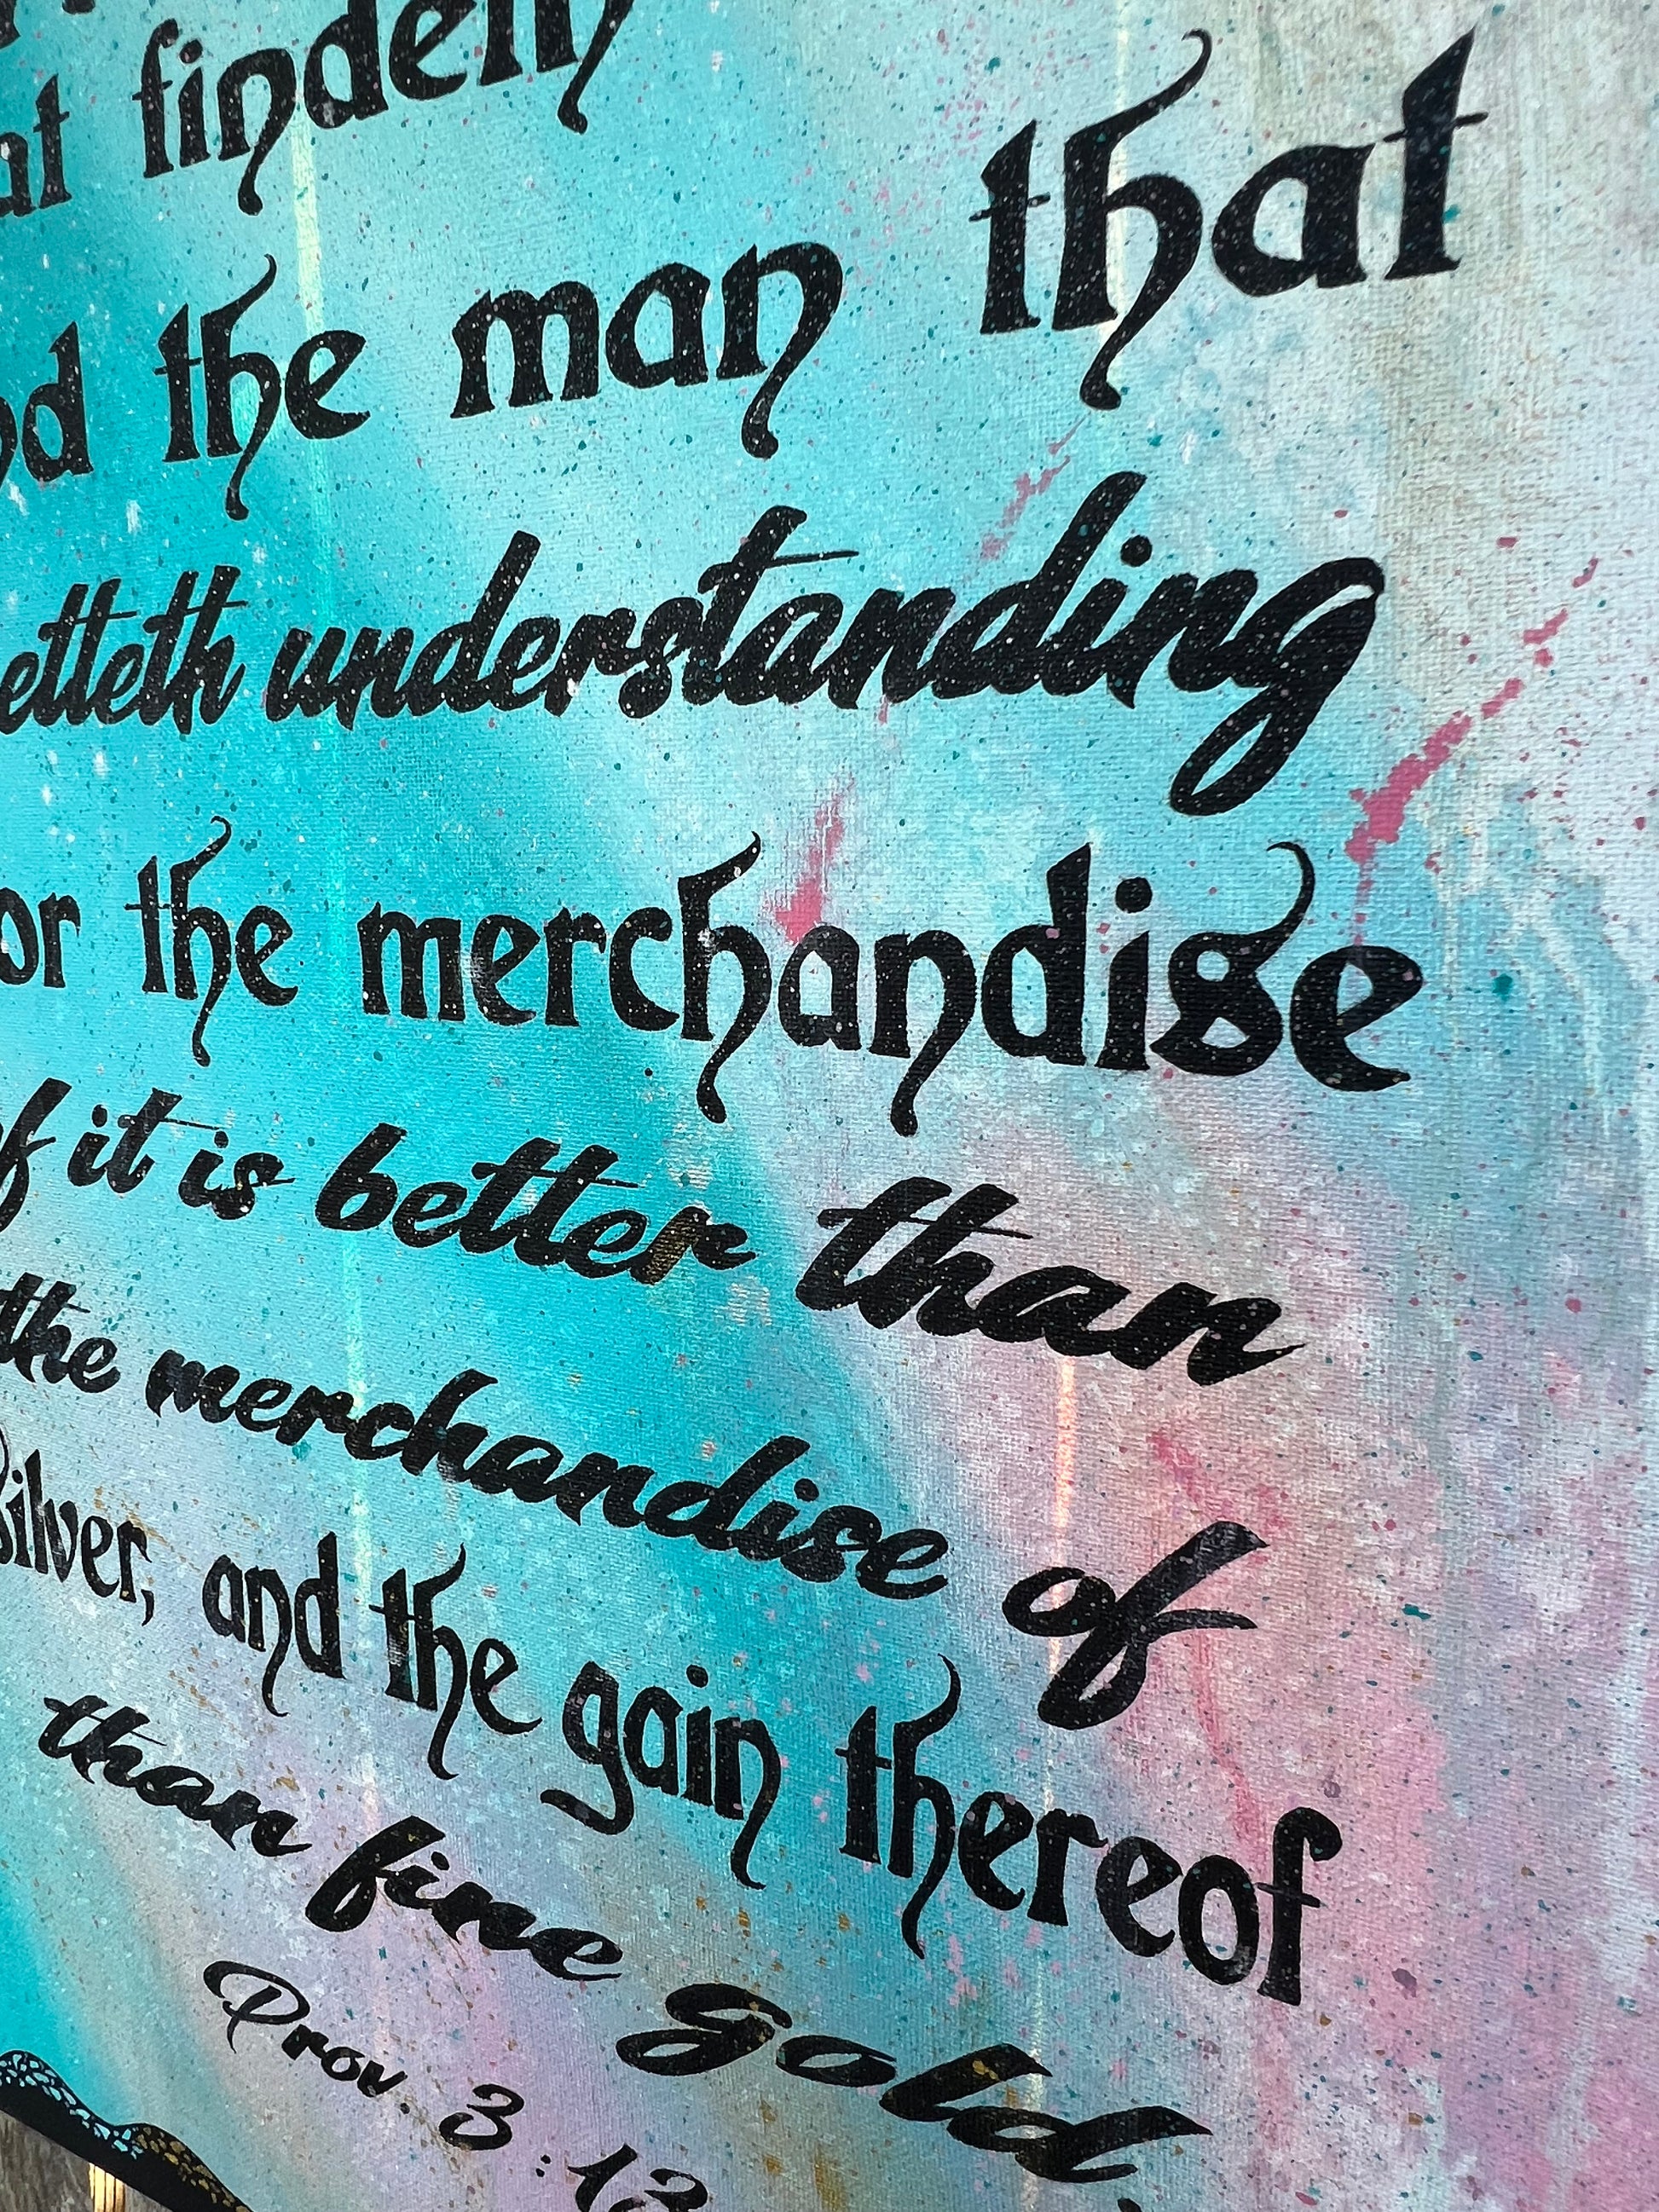 findeth
that
the man
etteth understanding
or the merchandise
of it is better than
the merchandise of
silver, and the gain thereof
than fine gold.
Prov. 3:13